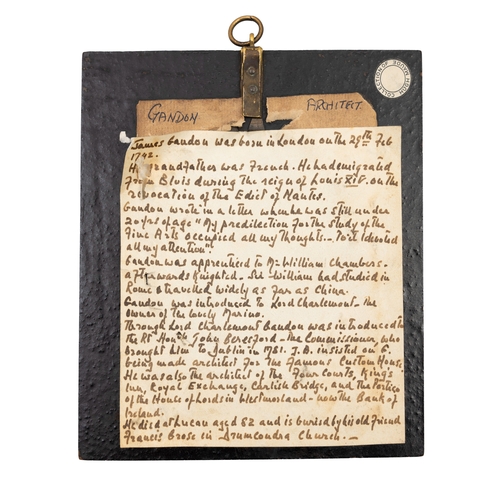 COLLECTION OF MAUDE HODN
GANDON ARCHITET.
James Gandon was born in London on the 29th Feb
1742.
His grandfather was French. He had emigrated
from Blois during the reign of Louis XIV. on the
revocation of the Edict of Nantes.
Gandon wrote in a letter when he was still under
20 yrs of age "My predilection for the study of the
Fine Arts occupied all my thoughts - to it I devoted
all my attention".
Gandon was apprenticed to Mr William Chambers -
afterwards Knighted. Sir William had studied in
Rome & travelled widely as far as China.
Gandon was introduced to Lord Charlemont - the
owner of the lovely Marino.
Through Lord Charlemont Gandon was introduced to
the Rt Honble John Beresford - the Commissioner, who
brought him to Dublin in 1781. J.B. insisted on G.
being made architect for the famous Custom House.
He was also the architect of the Four Courts, King's
Inn, Royal Exchange, Carlish Bridge, and the Portico
of the House of Lords in Westmorland - now the Bank of
Ireland.
He died at Lucan aged 82 and is buried by his old friend
Francis Grose in Drumcondra Church. -